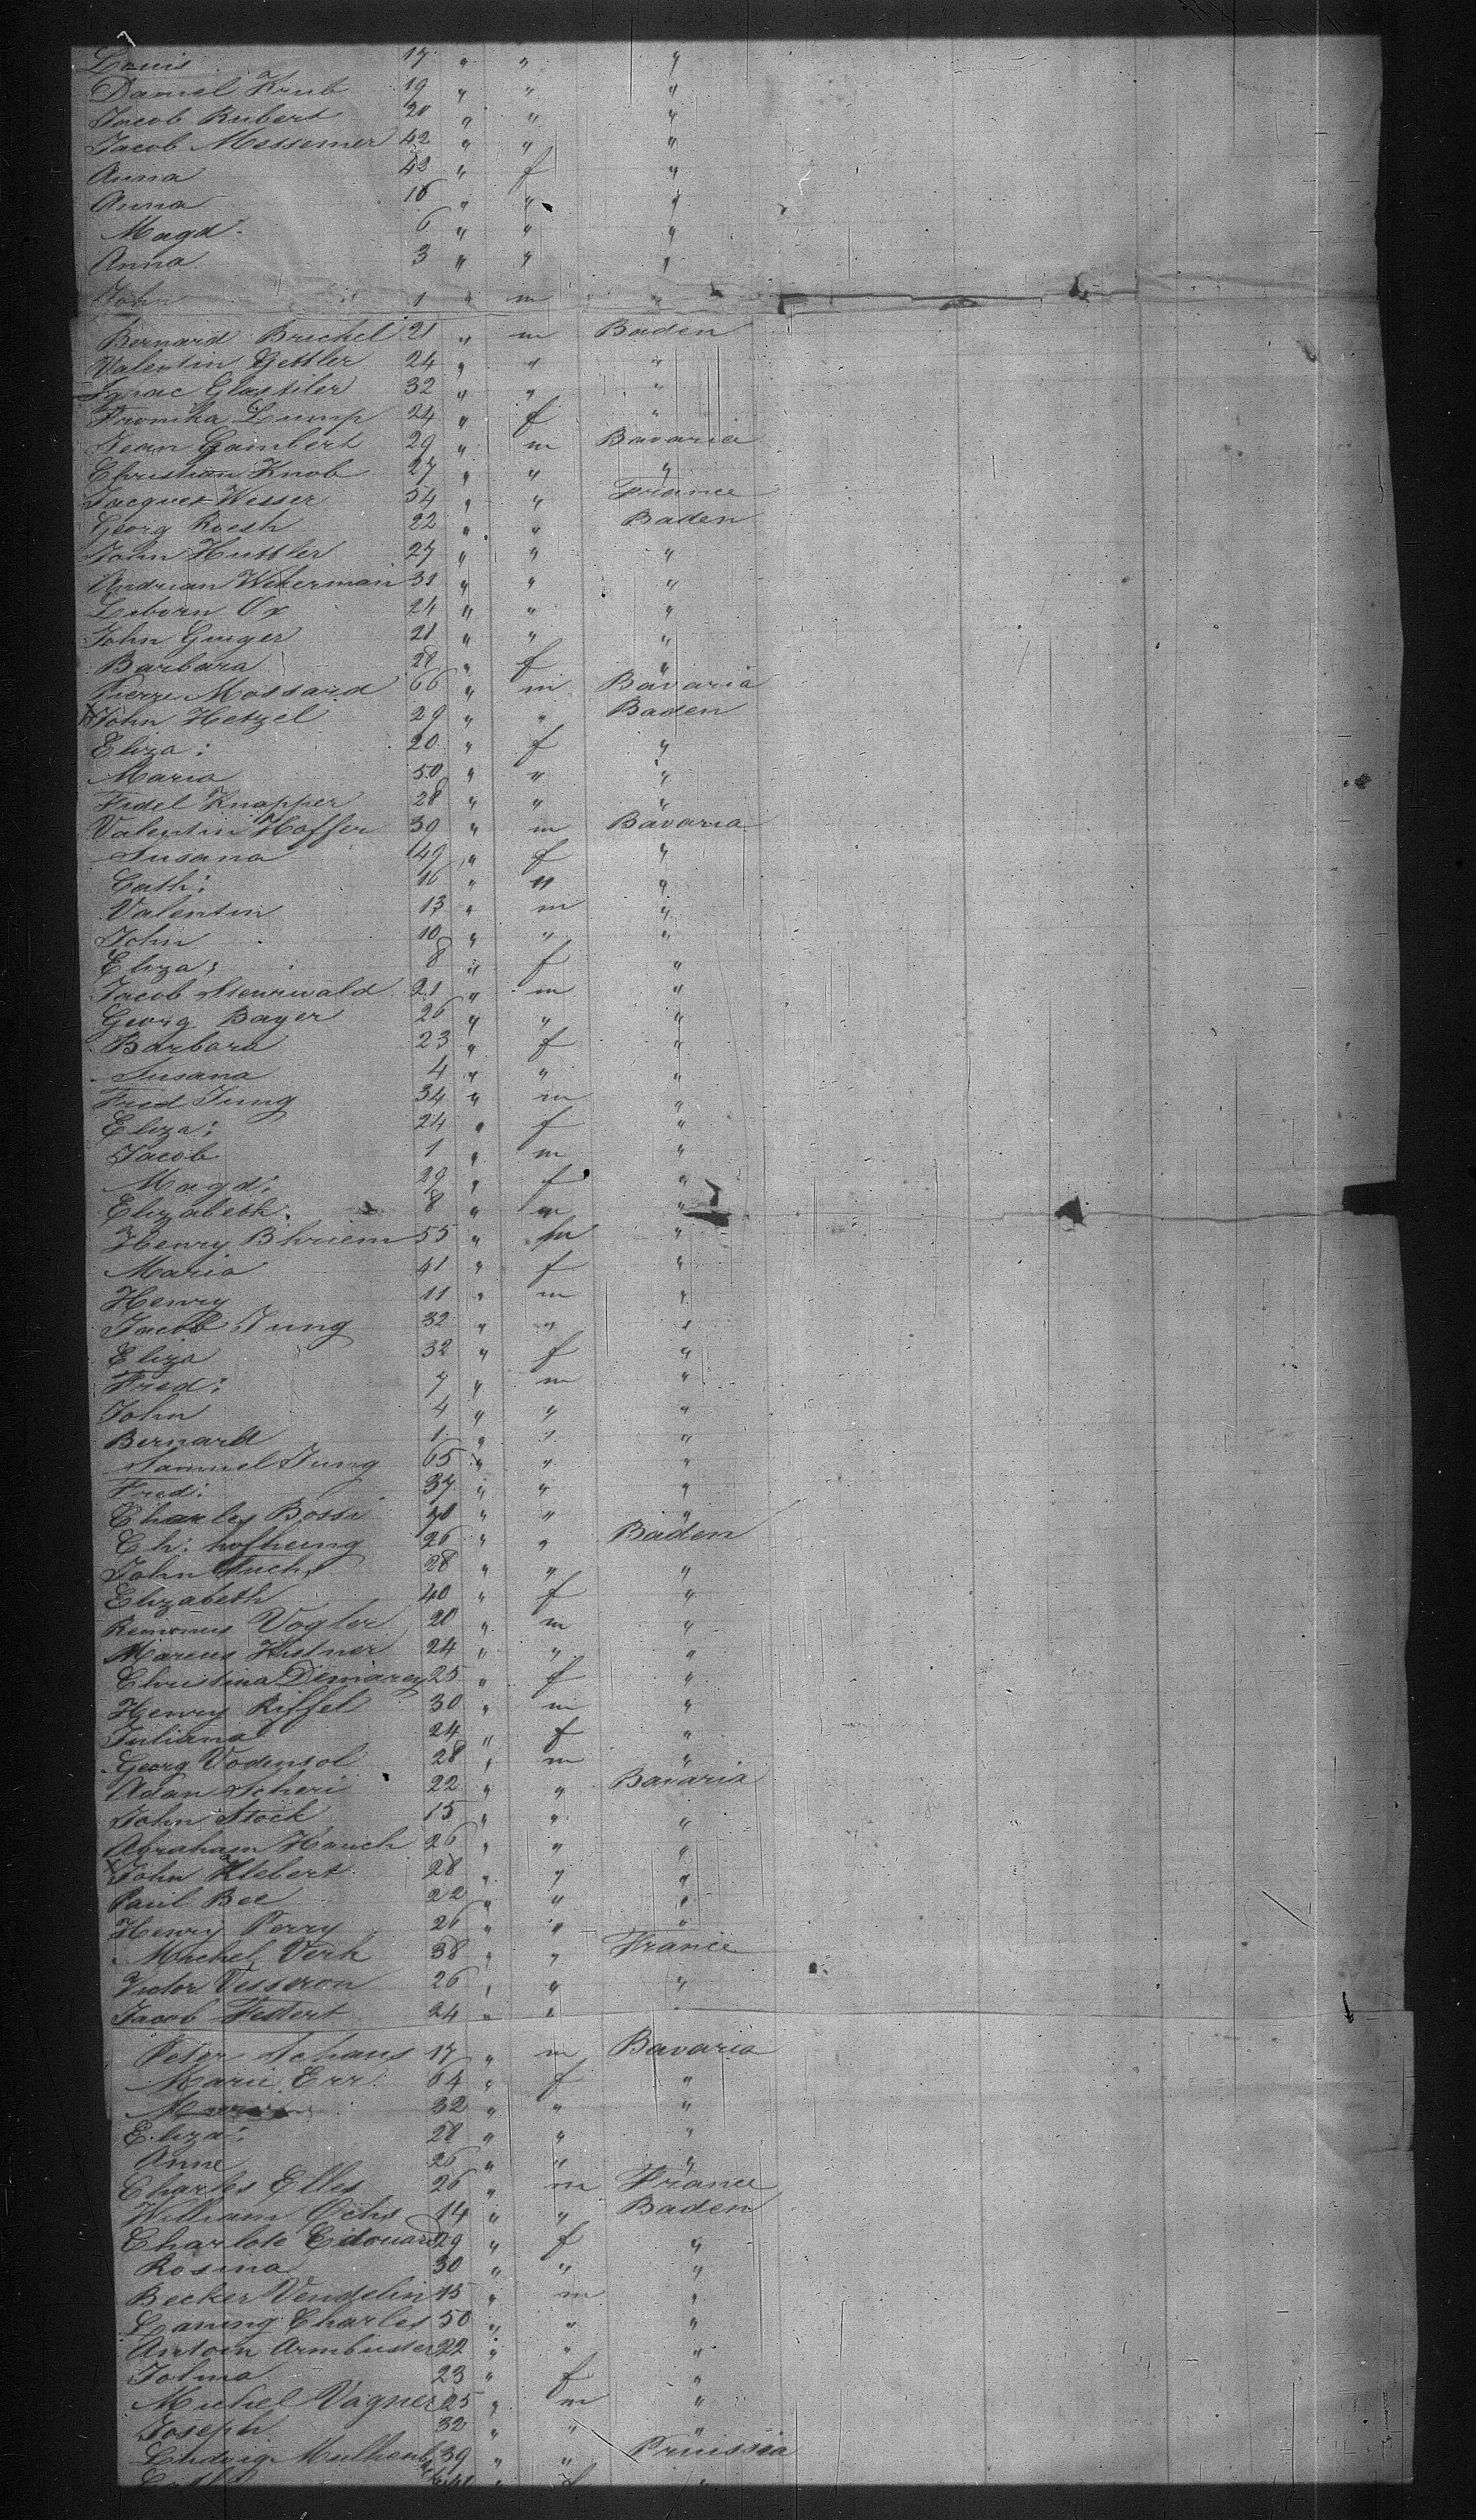 Louis 17 " " "
Daniel Krub 19 " " "
Jacob Rubert 20 " " "
Jacob Messemer 42 " " "
Anna 42 " f "
Anna 16 " " "
Magd: 6 " " "
Anna 3 " " "
John 1 " m "
Bernard Brickel 21 " m Baden
Valentin Gettler 24 " " "
Ignac Glastiler 32 " " "
Fronika Lump 24 " f "
Jean Gambert 29 " m Bavaria
Christian Knob 27 " " "
Jacques Wisser 54 " " France
Georg Roesh 22 " " Baden
John Huttler 27 " " "
Andrian Wekerman 31 " " "
Leborn Ox 24 " " "
John Geiger 21 " " "
Barbara 28 " f "
Pierre Massard 66 " m Bavaria
John Hetzel 29 " " Baden
Eliza: 20 " f "
Maria 50 " " "
Fidel Knapper 28 " " "
Valentin Hoffer 39 " m Bavaria
Susana 49 " f "
Cath: 16 " " "
Valentin 13 " m "
John 10 " " "
Eliza: 8 " f "
Jacob Steurwald 21 " m "
Georg Bayer 26 " " "
Barbara 23 " f "
Susana 4 " " "
Fred Jung 34 " m "
Eliza: 24 " f "
Jacob 1 " m "
Magd: 29 " f "
Elizabeth 8 " m "
Henry Bhriem 55 " m "
Maria 41 " f "
Henry 11 " m "
Jacob Jung 32 " " "
Eliza 32 " f "
Fred: 7 " m "
John 4 " " "
Bernard 1 " " "
Samuel Jung 65 " " "
Fred: 37 " " "
Charles Bossi " " "
Ch: hofheing 26 " " Baden
John Fuchs 28 " " "
Elizabeth 40 " f "
Vogler 20 " m "
Marcus Kistner 24 " " "
Christina Demarey 25 " f "
Henry Riffel 30 " m "
Juliana 24 " f "
Georg Vodensol 28 " m "
Adan Scheri 22 " " Bavaria
John Stock 15 " " "
Abraham Hauch 26 " " "
John Klebert 28 " " "
Paul Bee 22 " " "
Henry Perry 26 " " "
Michel Verk 38 " " France
Victor Visseron 26 " " "
Jacob Fistert 24 " " "
Peter Schaus 17 " m Bavaria
Marie Err 64 " f "
32 " " "
Eliza: 28 " " "
Anne 26 " " "
Charles Elles 26 " m France
William Ochs 14 " " Baden
Charlote Edouard 29 " f "
Rosina 30 " " "
Becker Vendelin 15 " m "
Laning Charles 50 " " "
Antoin Armbuster 22 " " "
Tolma 23 " f "
Michel Vagner 25 " m "
Joseph 32 " " "
Ludwig 39 " " Pruissia